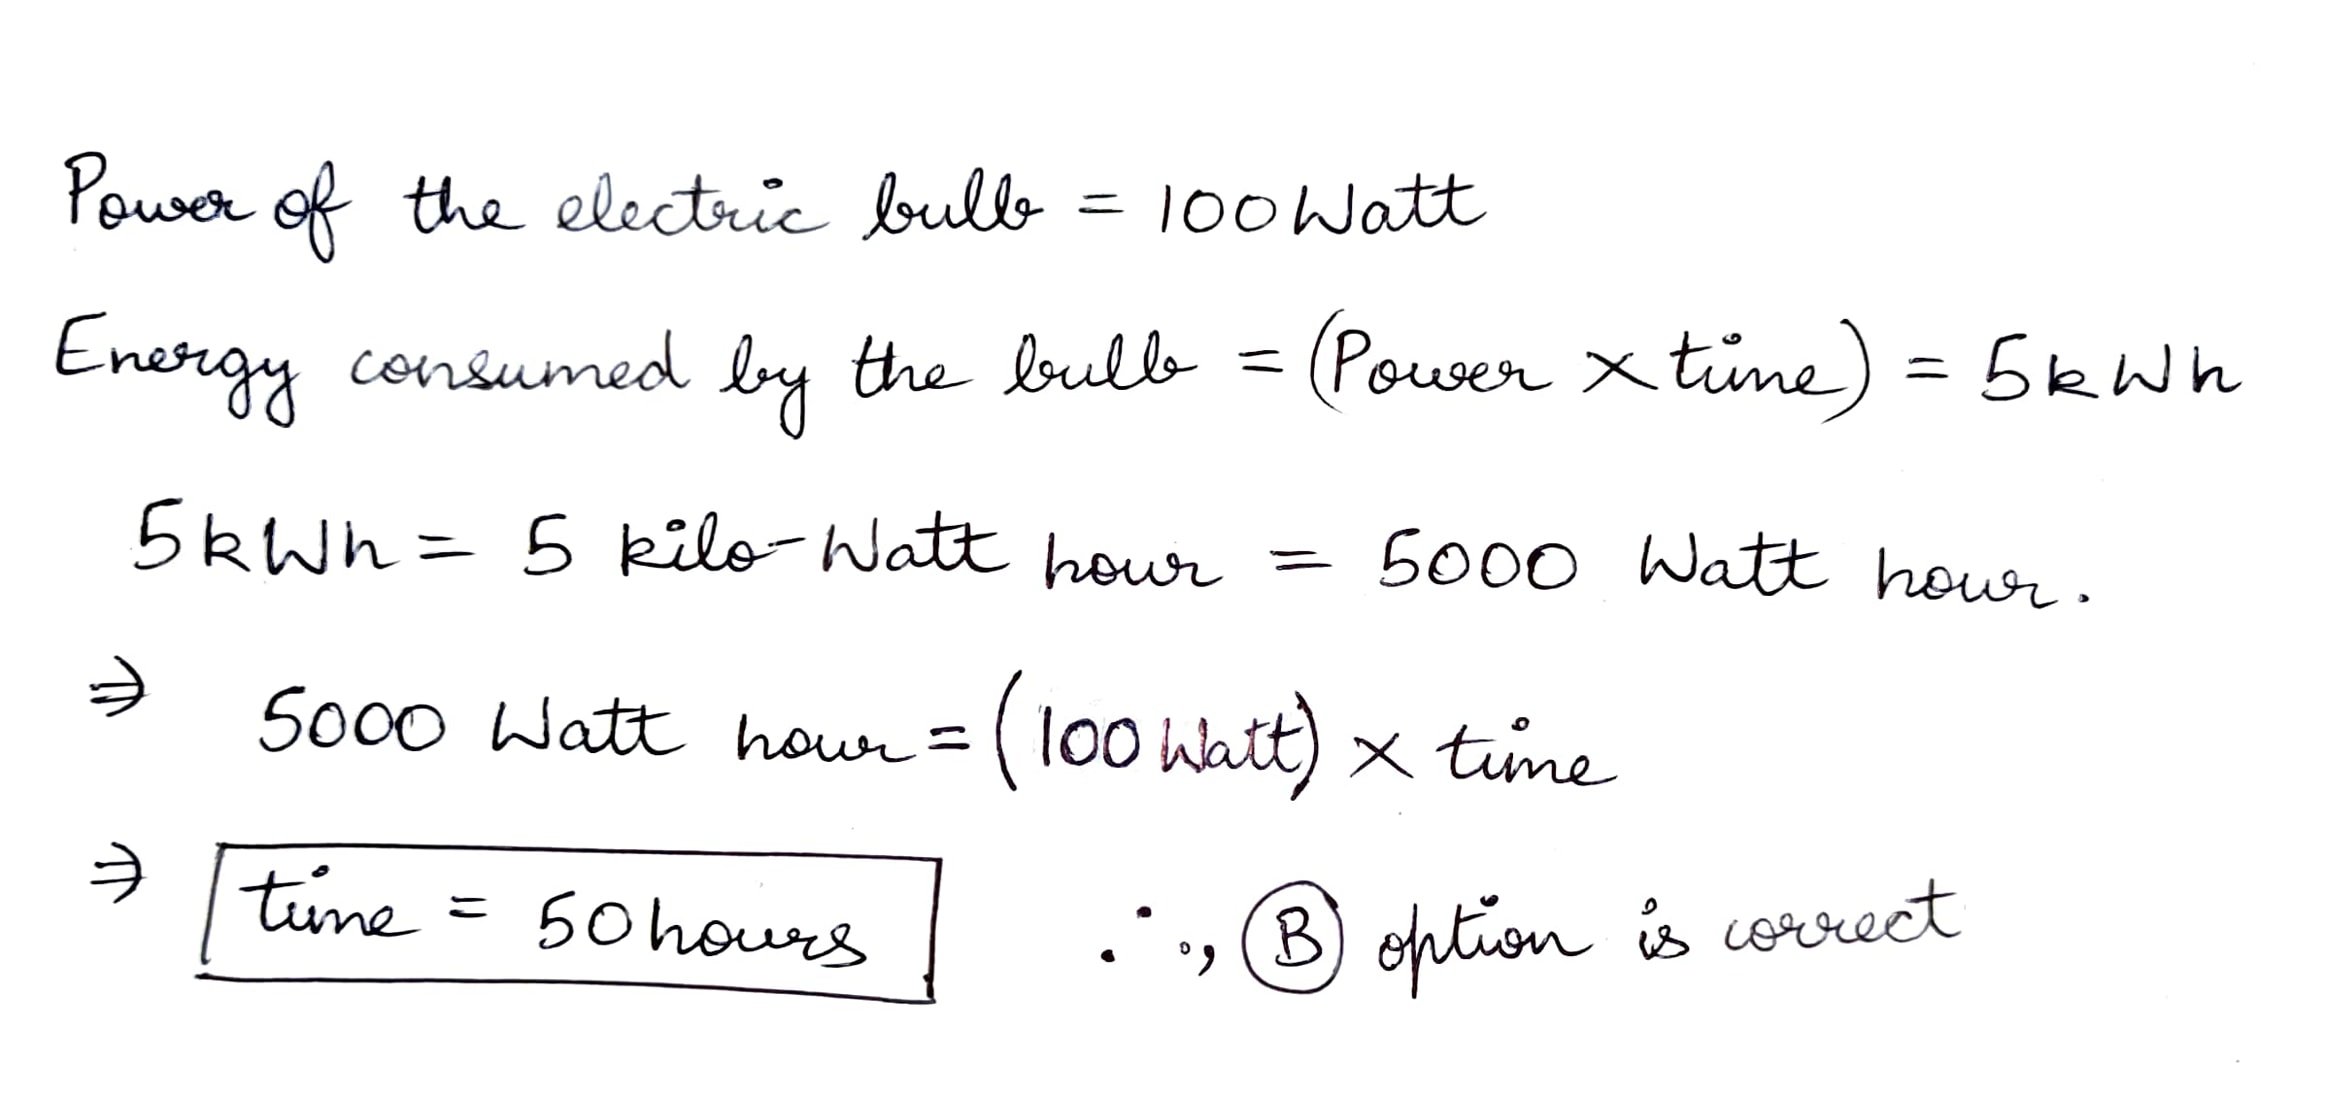 Power of the electric bulb = 100 Watt
Energy consumed by the bulb = (Power × time) = 5kWh
5kWh = 5 kilo-Watt hour = 5000 Watt hour.
⇒ 5000 Watt hour = (100 Watt) × time
⇒ time = 50 hours ∴, B option is correct